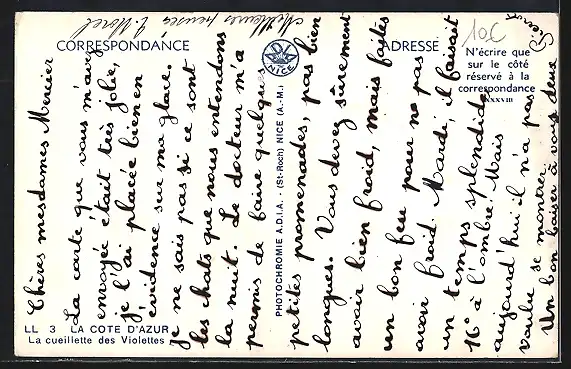 CORRESPONDANCE
ADRESSE
N'écrire que
sur le côté
réservé à la
correspondance
XXXVIII
10€
NICE
PHOTOCHROMIE A.D.I.A. - (St-Roch) NICE (A.-M.)
LL 3 LA COTE D'AZUR
La cueillette des Violettes
Chères mesdames Mercier
La carte que vous m'avez
envoyée était très jolie,
je l'ai placée bien en
évidence sur ma glace.
je ne sais pas si ce sont
les chats que nous entendons
la nuit. Le docteur m'a
permis de faire quelques
petites promenades, pas bien
longues. Vous devez sûrement
avoir bien froid, mais faites
un bon feu pour ne pas
avoir froid. Mardi, il faisait
un temps splendide
16° à l'ombre. Mais
aujourd'hui il n'a pas
voulu se montrer.
Un bon baiser à vous deux
Pierrot
Meilleures pensées J. Morel